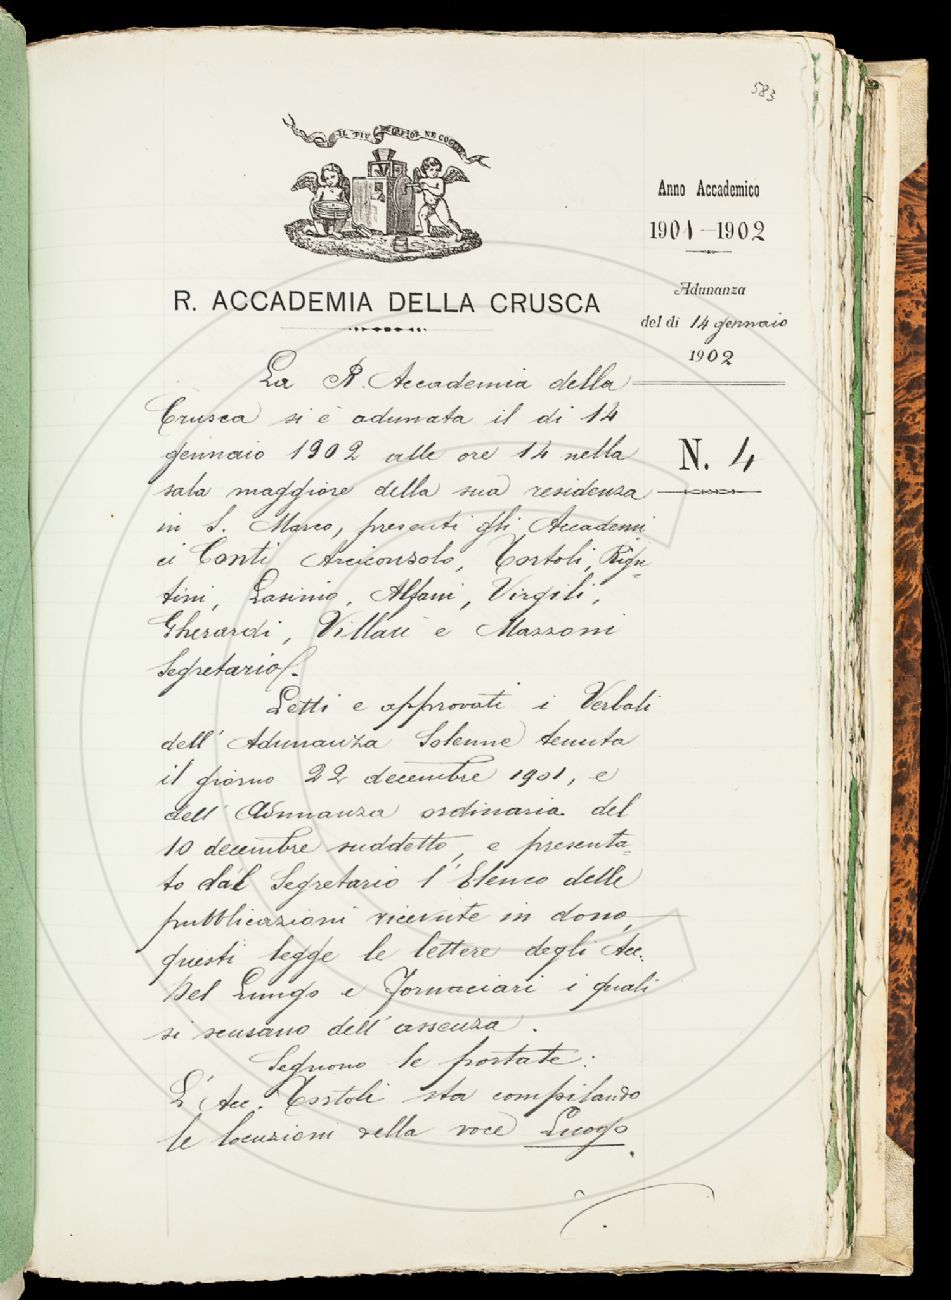 583
IL PIÙ BEL FIOR NE COGLIE
Anno Accademico
1901-1902
Adunanza
del dì 14 gennaio
1902
N. 4
R. ACCADEMIA DELLA CRUSCA
La R Accademia della
Crusca si è adunata il dì 14
gennaio 1902 alle ore 14 nella
sala maggiore della sua residenza
in S. Marco, presenti gli Accademi
ci Conti Arciconsolo, Tortoli, Rigu-
tini, Lasinio, Alfani, Virgili,
Gherardi, Villari e Mazzoni
Segretario.
Letti e approvati i Verbali
dell' Adunanza Solenne tenuta
il giorno 22 decembre 1901, e
dell' Adunanza ordinaria del
10 decembre suddetto, e presenta-
to dal Segretario l' Elenco delle
pubblicazioni ricevute in dono,
questi legge le lettere degli Acc.
Del Lungo e Fornaciari i quali
si scusano dell' assenza.
Seguono le portate:
L' Acc. Tortoli sta compilando
le locuzioni della voce Luogo.